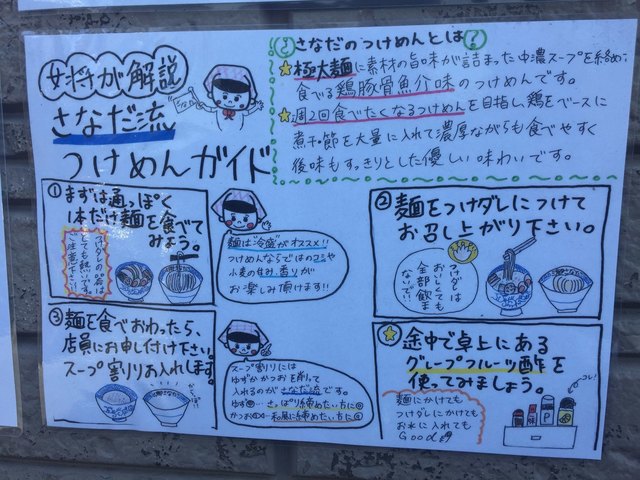 女将が解説
さなだ流
つけめんガイド
さなだのつけめんとは?
★極太麺に素材の旨味が詰まった中濃スープを絡め
食べる鶏豚骨魚介味のつけめんです。
★週2回食べたくなるつけめんを目指し鶏をベースに
煮干・節を大量に入れて濃厚ながらも食べやすく
後味もすっきりとした優しい味わいです。
①まずは通っぽく
1本だけ麺を食べて
みよう。
とても熱いです。
ご注意下さい!!
麺は"冷盛"がオススメ!!
つけめんならではのコシや
小麦の甘み、香りが
お楽しみ頂けます!!
②麺をつけダレにつけて
お召し上がり下さい。
つけダレは
おいしくても
全部飲ま
ないで!!
③麺を食べおわったら、
店員にお申し付け下さい。
スープ割りお入れします。
スープ割りには
ゆずかかつおを削って
入れるのがさなだ流です。
ゆず…さっぱり締めたい方に
かつお…和風に締めたい方に
★途中で卓上にある
グレープフルーツ酢を
使ってみましょう。
麺にかけても
つけダレにかけても
お水に入れても
Good
コレ!